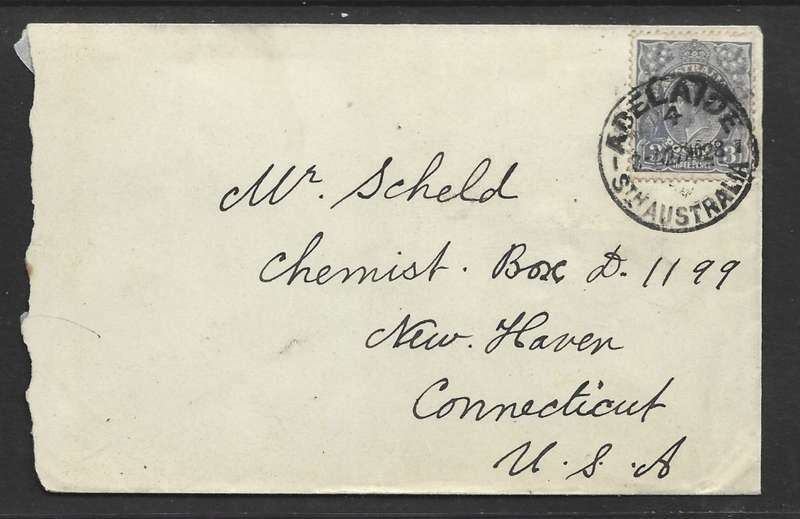 ADELAIDE
4
STH AUSTRALIA
Mr. Scheld
Chemist. Box D. 1199
New. Haven
Connecticut
U. S. A